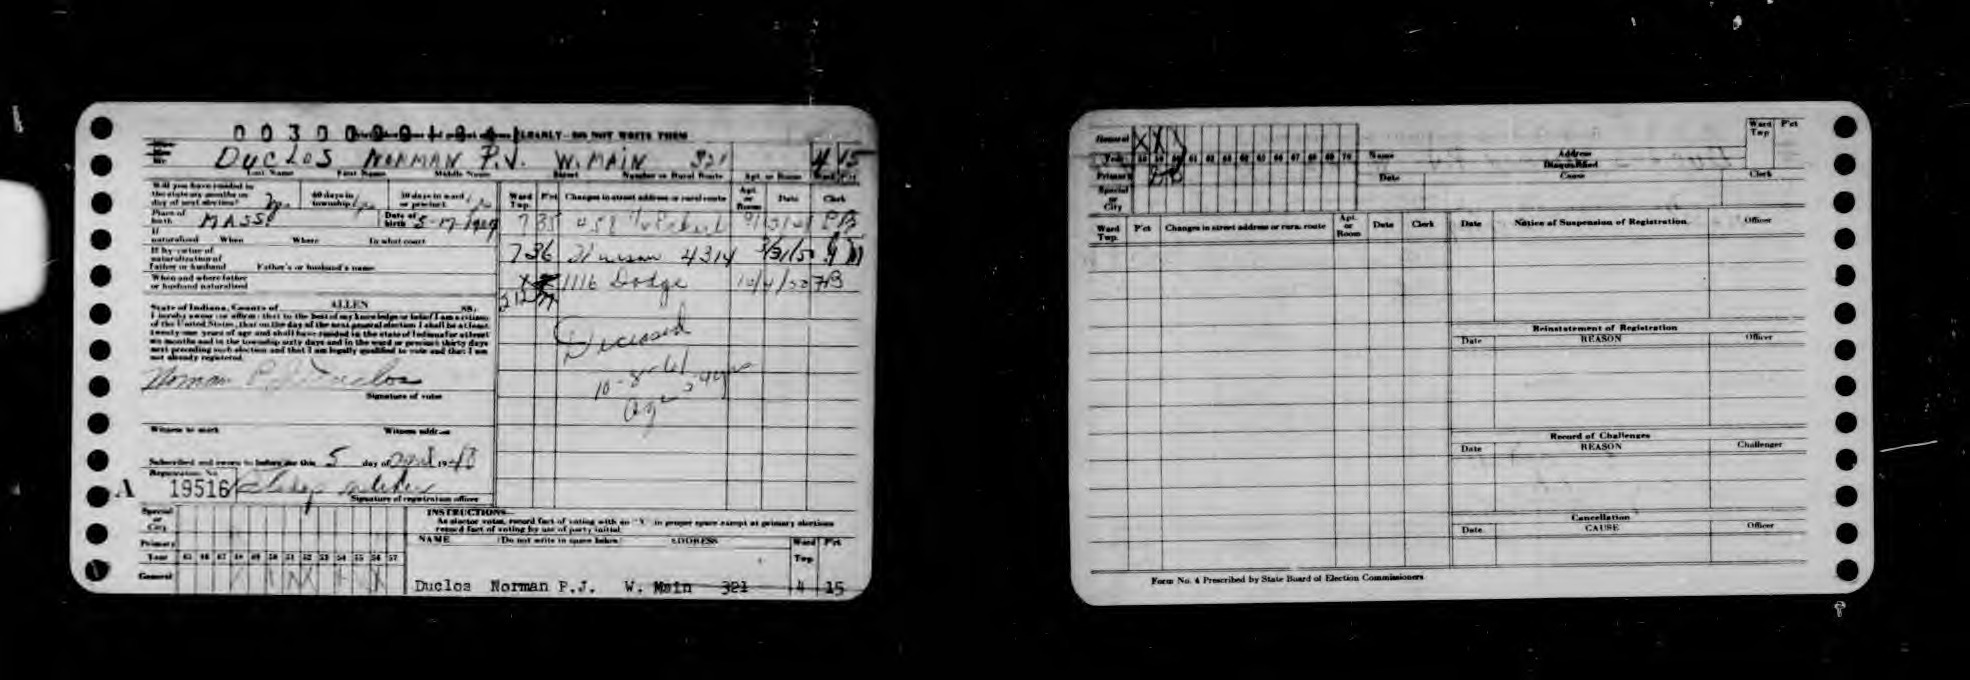 CLEARLY - DO NOT WRITE THEM
DUCLOS NORMAN P.J. W. MAIN 321 4 15
Last Name First Name Middle Name Street Number or Rural Route Apt. or Room Ward Pct
Will you have resided in
the state six months on
day of next election?
60 days in
township
30 days in ward
or precinct
Place of
birth MASS. Date of
birth 5-17-1907
If
naturalized When Where In what court
If by virtue of
naturalization of
Father or husband Father's or husband's name
When and where father
or husband naturalized
State of Indiana, County of ALLEN SS:
I hereby swear (or affirm) that to the best of my knowledge or belief I am a citizen
of the United States, that on the day of the next general election I shall be at least
twenty-one years of age and shall have resided in the state of Indiana for at least
six months and in the township sixty days and in the ward or precinct thirty days
next preceding such election and that I am legally qualified to vote and that I am
not already registered.
Norman P. J. Duclos
Signature of voter
Witness to mark Witness address
Subscribed and sworn to before me this 5 day of April 1948
Registration No.
A 19516
Signature of registration officer
Ward
Twp. P'ct Changes in street address or rural route Apt.
or
Room Date Clerk
7 35
7 36 4314
1116 Dodge
Deceased
10-8-61
age
INSTRUCTIONS
As elector votes, record fact of voting with an "X" in proper space except at primary elections
record fact of voting by use of party initial.
Special
or
City
Primary
Year 45 46 47 48 49 50 51 52 53 54 55 56 57
General
NAME (Do not write in space below) ADDRESS Ward
Twp P'ct
Duclos Norman P.J. W. Main 321 4 15
General X X X
Year 58 59 60 61 62 63 64 65 66 67 68 69 70
Primary
Special
or
City
Name Address
Disqualified
Date Cause Clerk
Ward
Twp P'ct
Ward
Twp. P'ct Changes in street address or rural route Apt.
or
Room Date Clerk
Date Notice of Suspension of Registration Officer
Reinstatement of Registration
Date REASON Officer
Record of Challenges
Date REASON Challenger
Cancellation
Date CAUSE Officer
Form No. 4 Prescribed by State Board of Election Commissioners